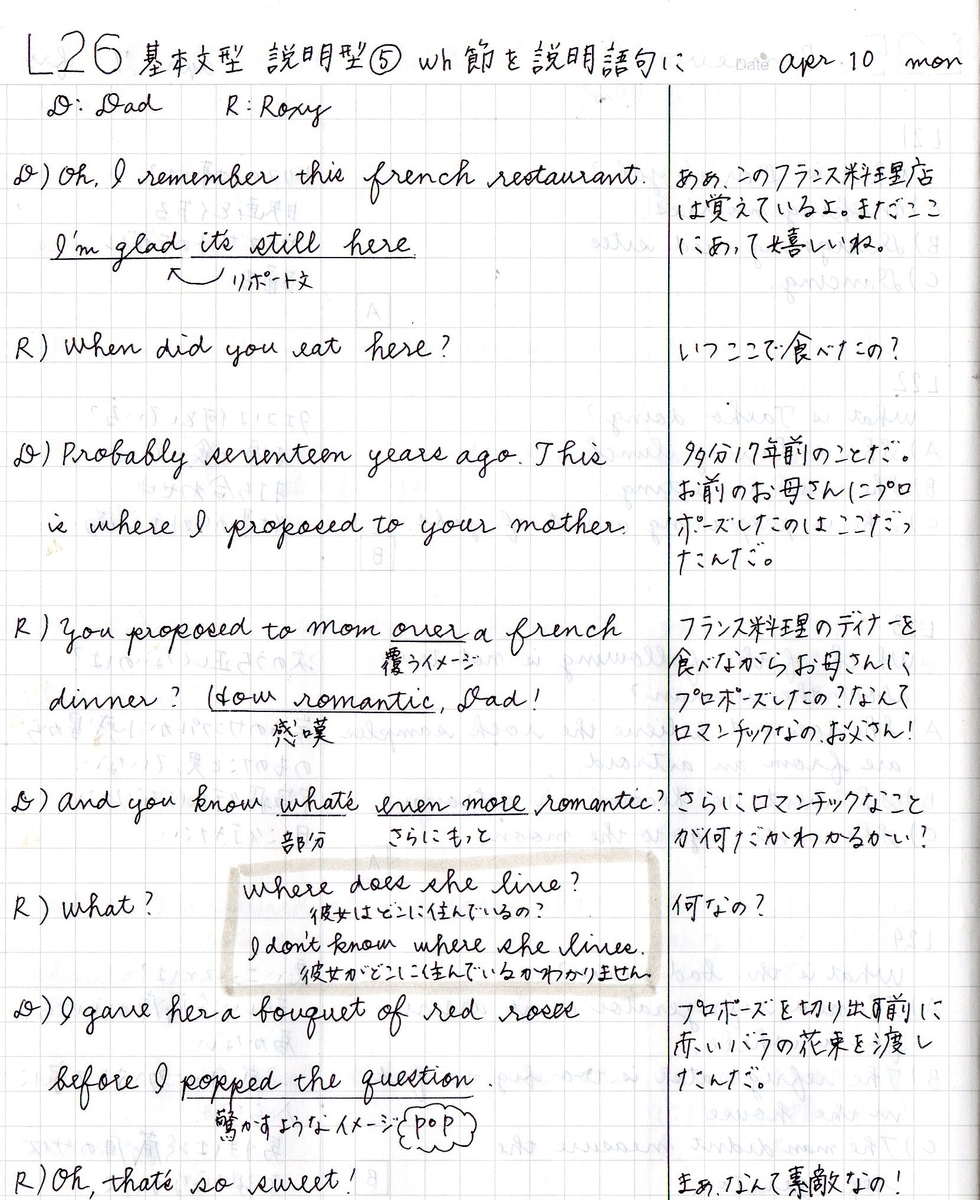 L26 基本文型 説明型⑤ wh節を説明語句に Date apr. 10 mon
D: Dad R: Roxy
D) Oh, I remember this french restaurant.
I'm glad it's still here.
リポート文
ああ、このフランス料理店
は覚えているよ。まだここ
にあって嬉しいね。
R) When did you eat here?
いつここで食べたの?
D) Probably seventeen years ago. This
is where I proposed to your mother.
多分17年前のことだ。
お前のお母さんにプロ
ポーズしたのはここだっ
たんだ。
R) You proposed to mom over a french
覆うイメージ
dinner? How romantic, Dad!
感嘆
フランス料理のディナーを
食べながらお母さんに
プロポーズしたの?なんて
ロマンチックなの、お父さん!
D) And you know what's even more romantic?
部分 さらにもっと
さらにロマンチックなこと
が何だかわかるかい?
R) What?
何なの?
where does she live?
彼女はどこに住んでいるの?
I don't know where she lives.
彼女がどこに住んでいるかわかりません
D) I gave her a bouquet of red roses
before I popped the question.
驚かすようなイメージ pop
プロポーズを切り出す前に
赤いバラの花束を渡し
たんだ。
R) Oh, that's so sweet!
まあ、なんて素敵なの!